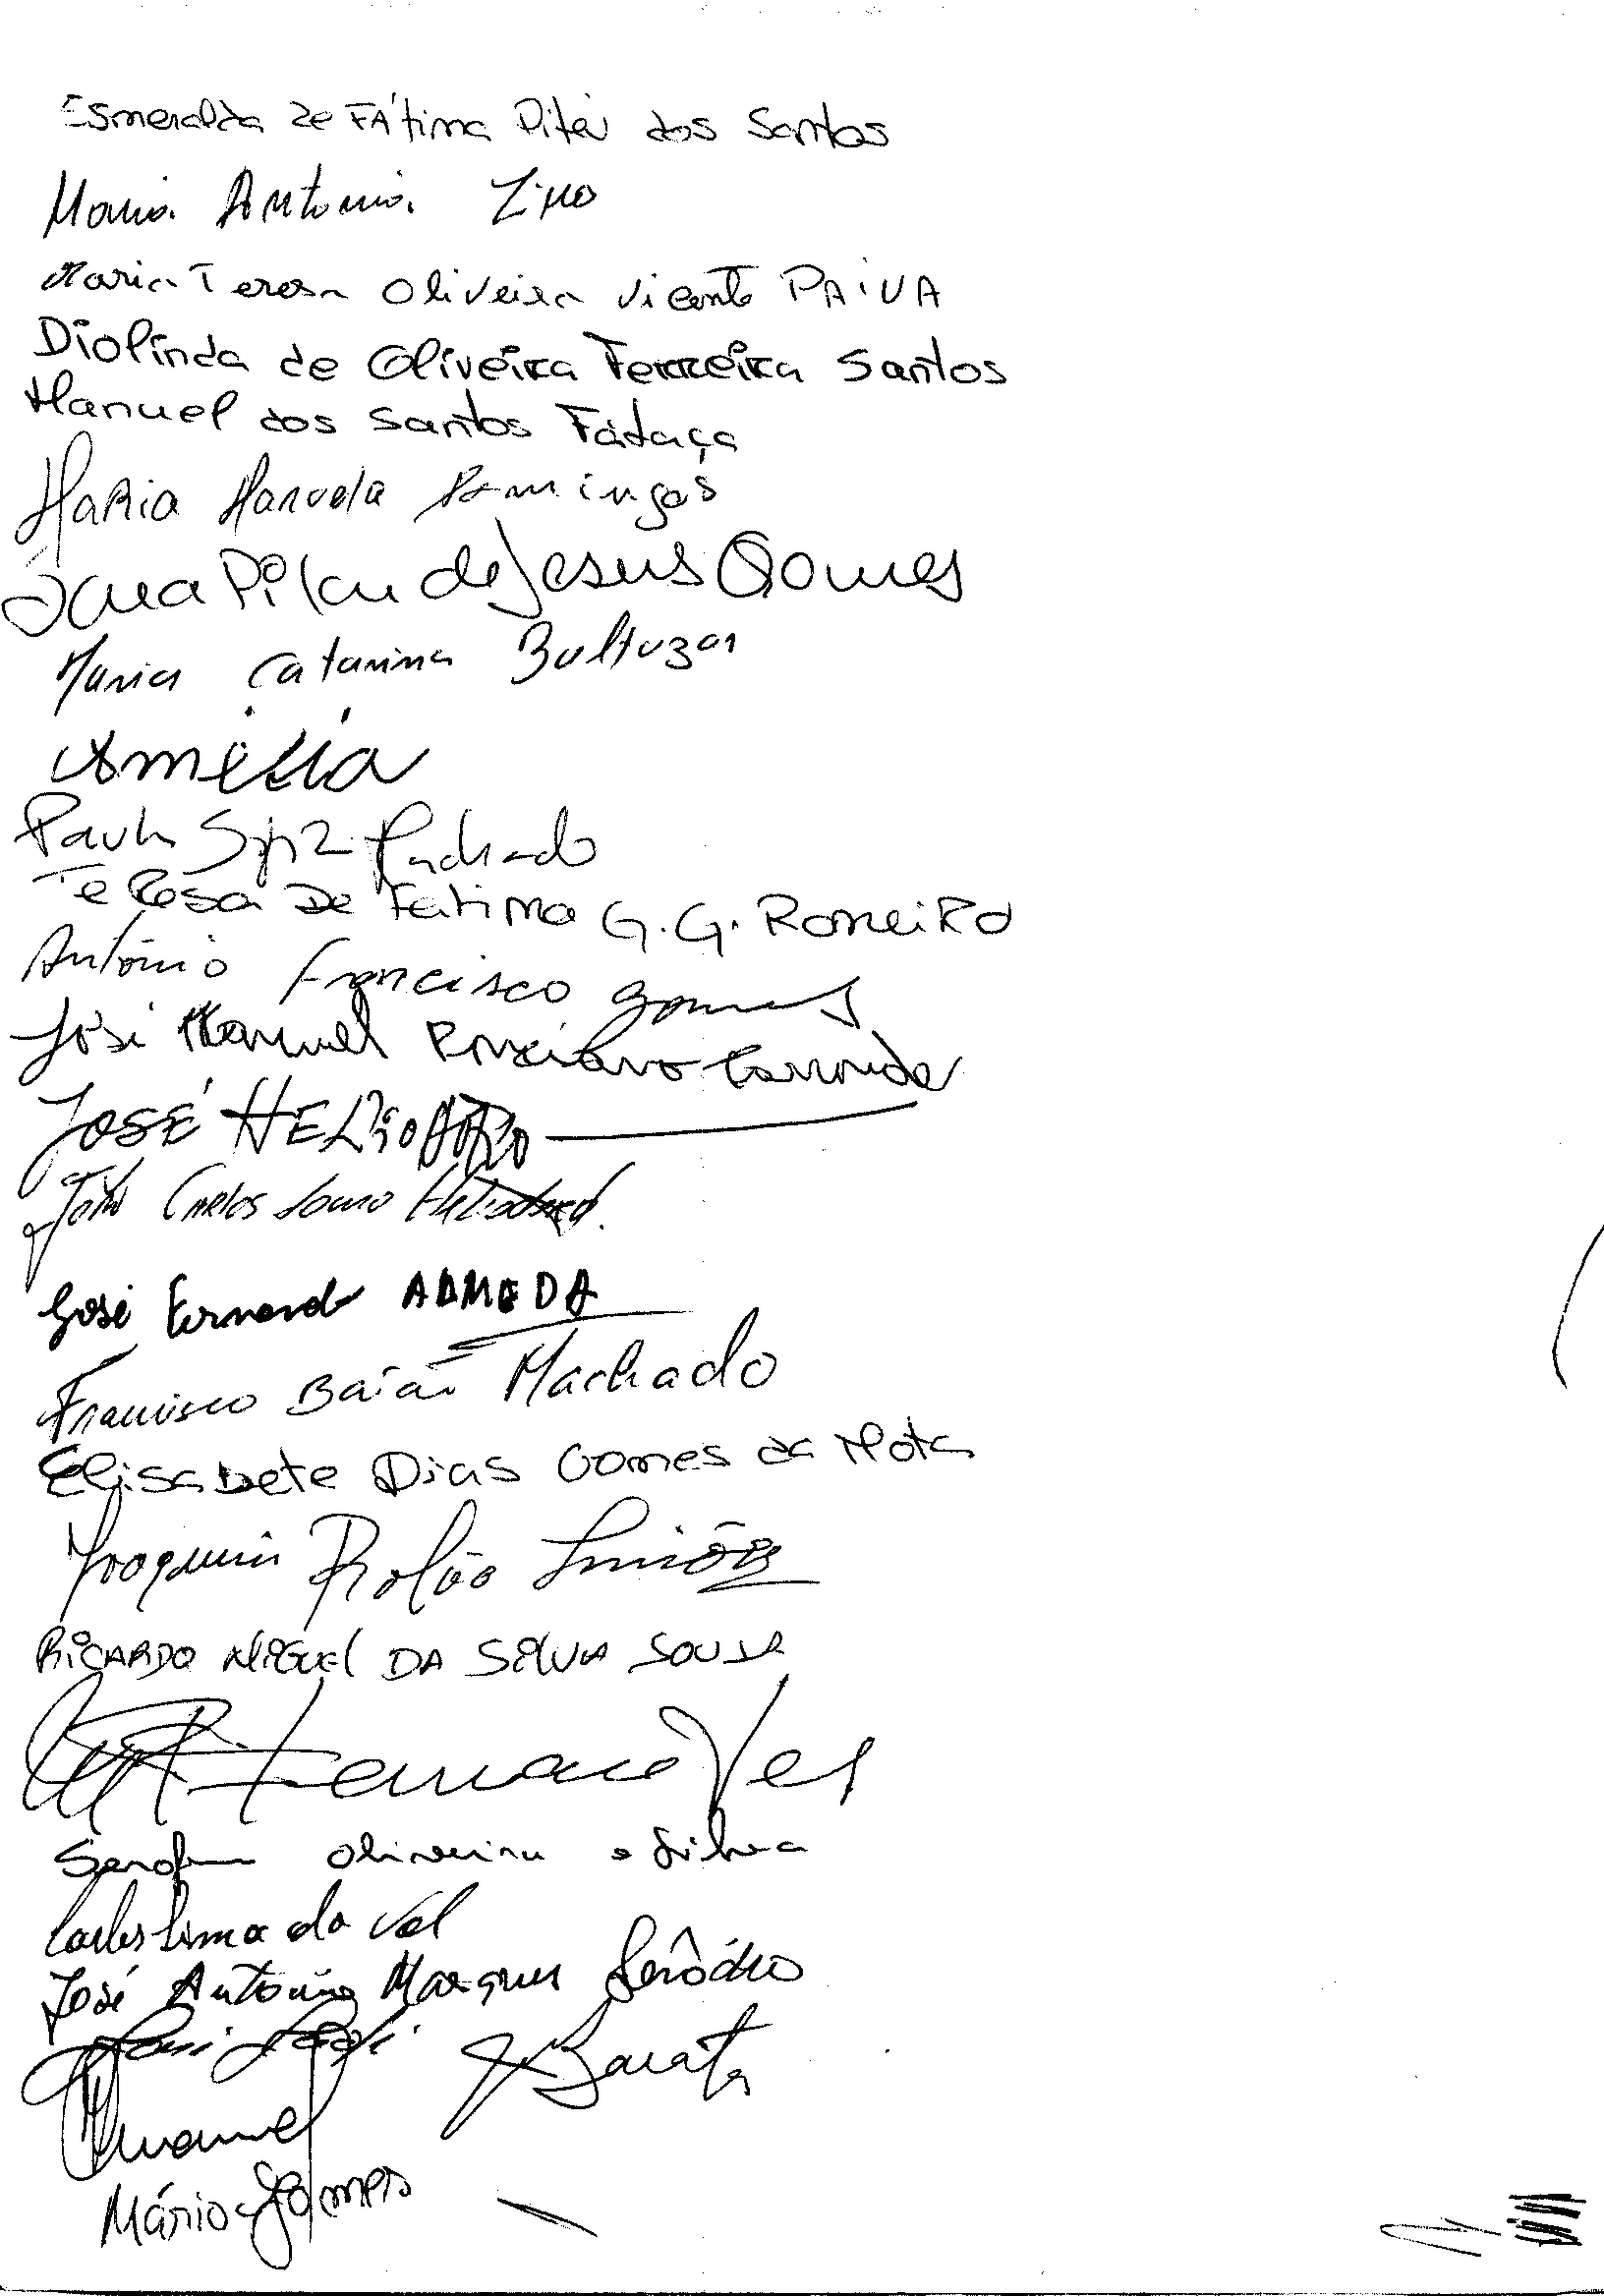 Esmeralda de FÁtima Pitéu dos Santos
Maria Antonia
Maria Teresa Oliveira Vicente PAiVA
Diolinda de Oliveira Ferreira Santos
Manuel dos Santos Fataça
MaRia Manuela Domingos
Ana Pilar de Jesus Gomes
Maria Catarina Baltazar
Amélia
Paula Machado
TeResa De Fatima G. G. RomeiRo
António Francisco Gomes
José Manuel
JOSÉ HELIODORO
João CARLOS
José Fernando ALMEIDA
Francisco Baião Machado
Elisabete Dias Gomes da Mota
Joaquim Rolão Simões
RiCARDO MiGUEL DA SilVA SOUSA
Serafim Oliveira e Silva
Carlos Lima do Val
José António Marques Serôdio
Barata
Manuel
Mário Gomes